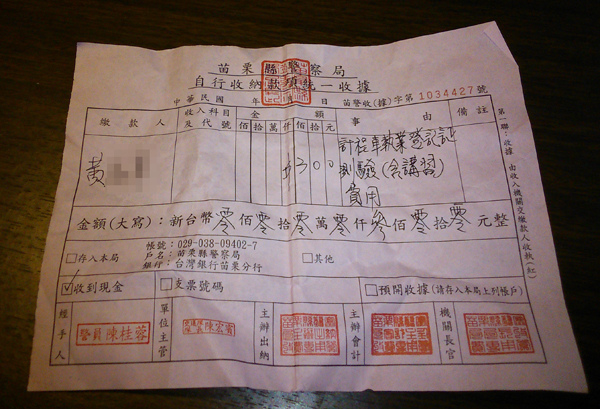 苗栗縣警察局
自行收納款項統一收據
中華民國 年 月 日 苗警收(據)字第1034427號
繳款人 收入科目及代號 金額 佰拾萬仟佰拾元 事由 備註
黃 $300 計程車執業登記証
測驗(含講習)
費用
金額(大寫):新台幣零佰零拾零萬零仟參佰零拾零元整
□存入本局 帳號:029-038-09402-7
戶名:苗栗縣警察局
銀行:台灣銀行苗栗分行
□其他
☑收到現金 □支票號碼 □預開收據(請存入本局上列帳戶)
經手人 警員陳桂蓉 單位主管 主辦出納 主辦會計 機關長官
第一聯:收據 由收入機關交繳款人收執(紅)